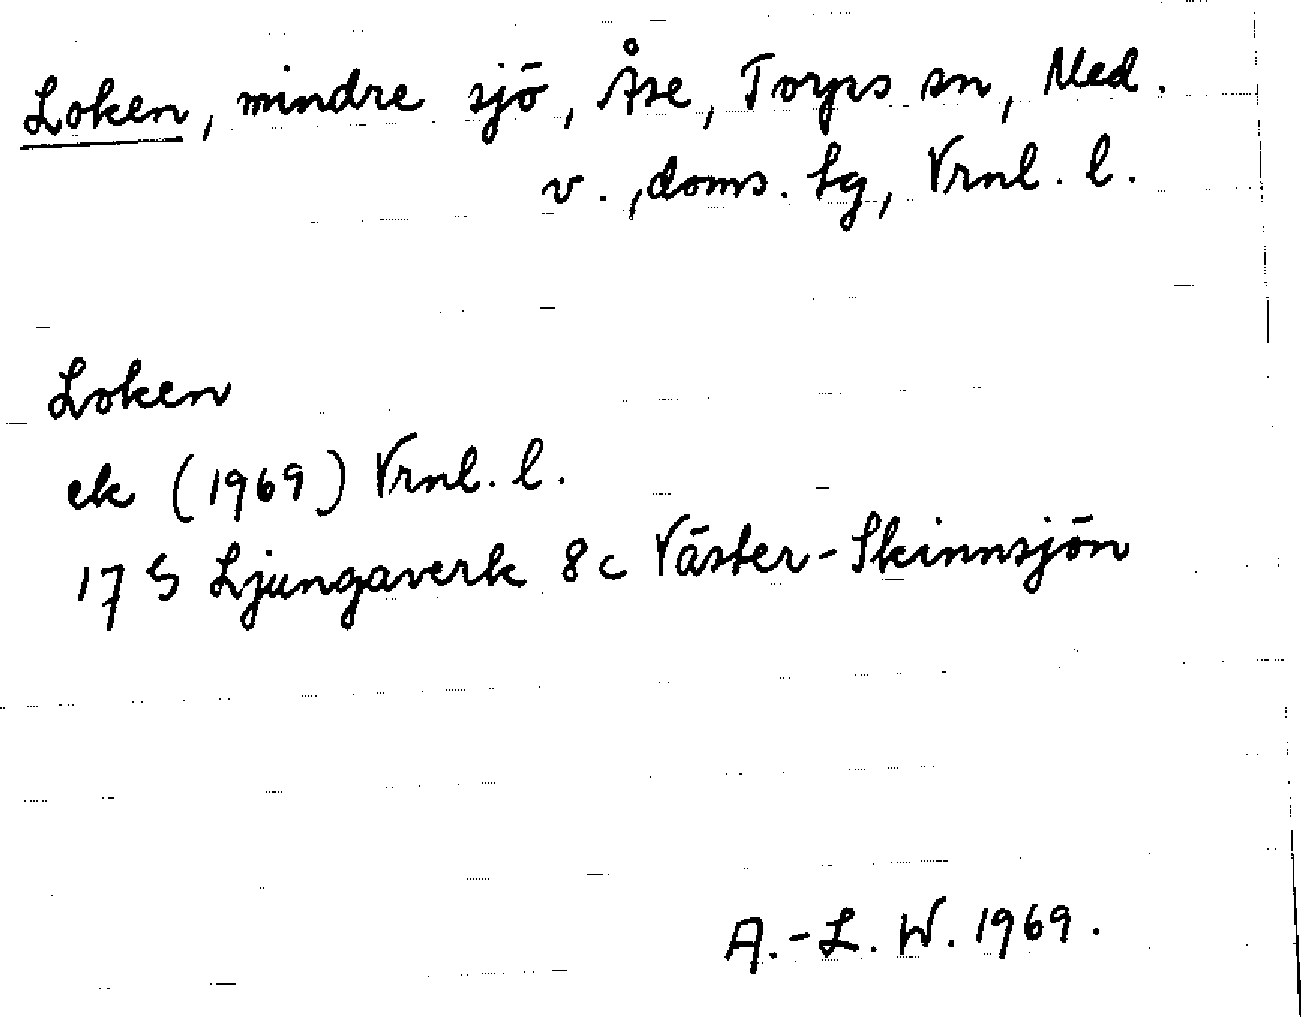 Loken, mindre sjö, Åse, Torps sn, Med.
v., doms. sg, Vrnl. l.
Loken
ek (1969) Vrnl. l.
17 G Ljungaverk 8c Väster-Skinnsjön
A.-L. W. 1969.